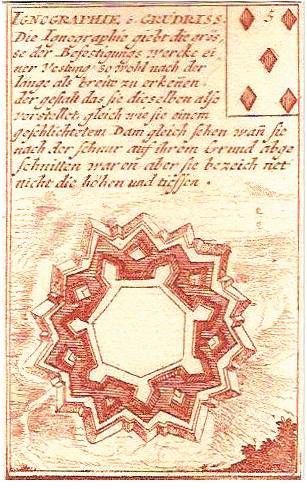 IGNOGRAPHIE ó GRUDRISS.
5
Die Ignographie giebt die grös,
se der Befostigungs wercke ei,
ner Vestung so wohl nach der
länge als breite zu erkeñen.
der gestalt das sie dieselben also
vorstellet, gleich wie sie einem
geschlichtetem Dam gleich sehen wañ sie
nach der schnur auf ihrem Grund abge
schnitten waren aber sie bezeich net
nicht die höhen und tieffen.